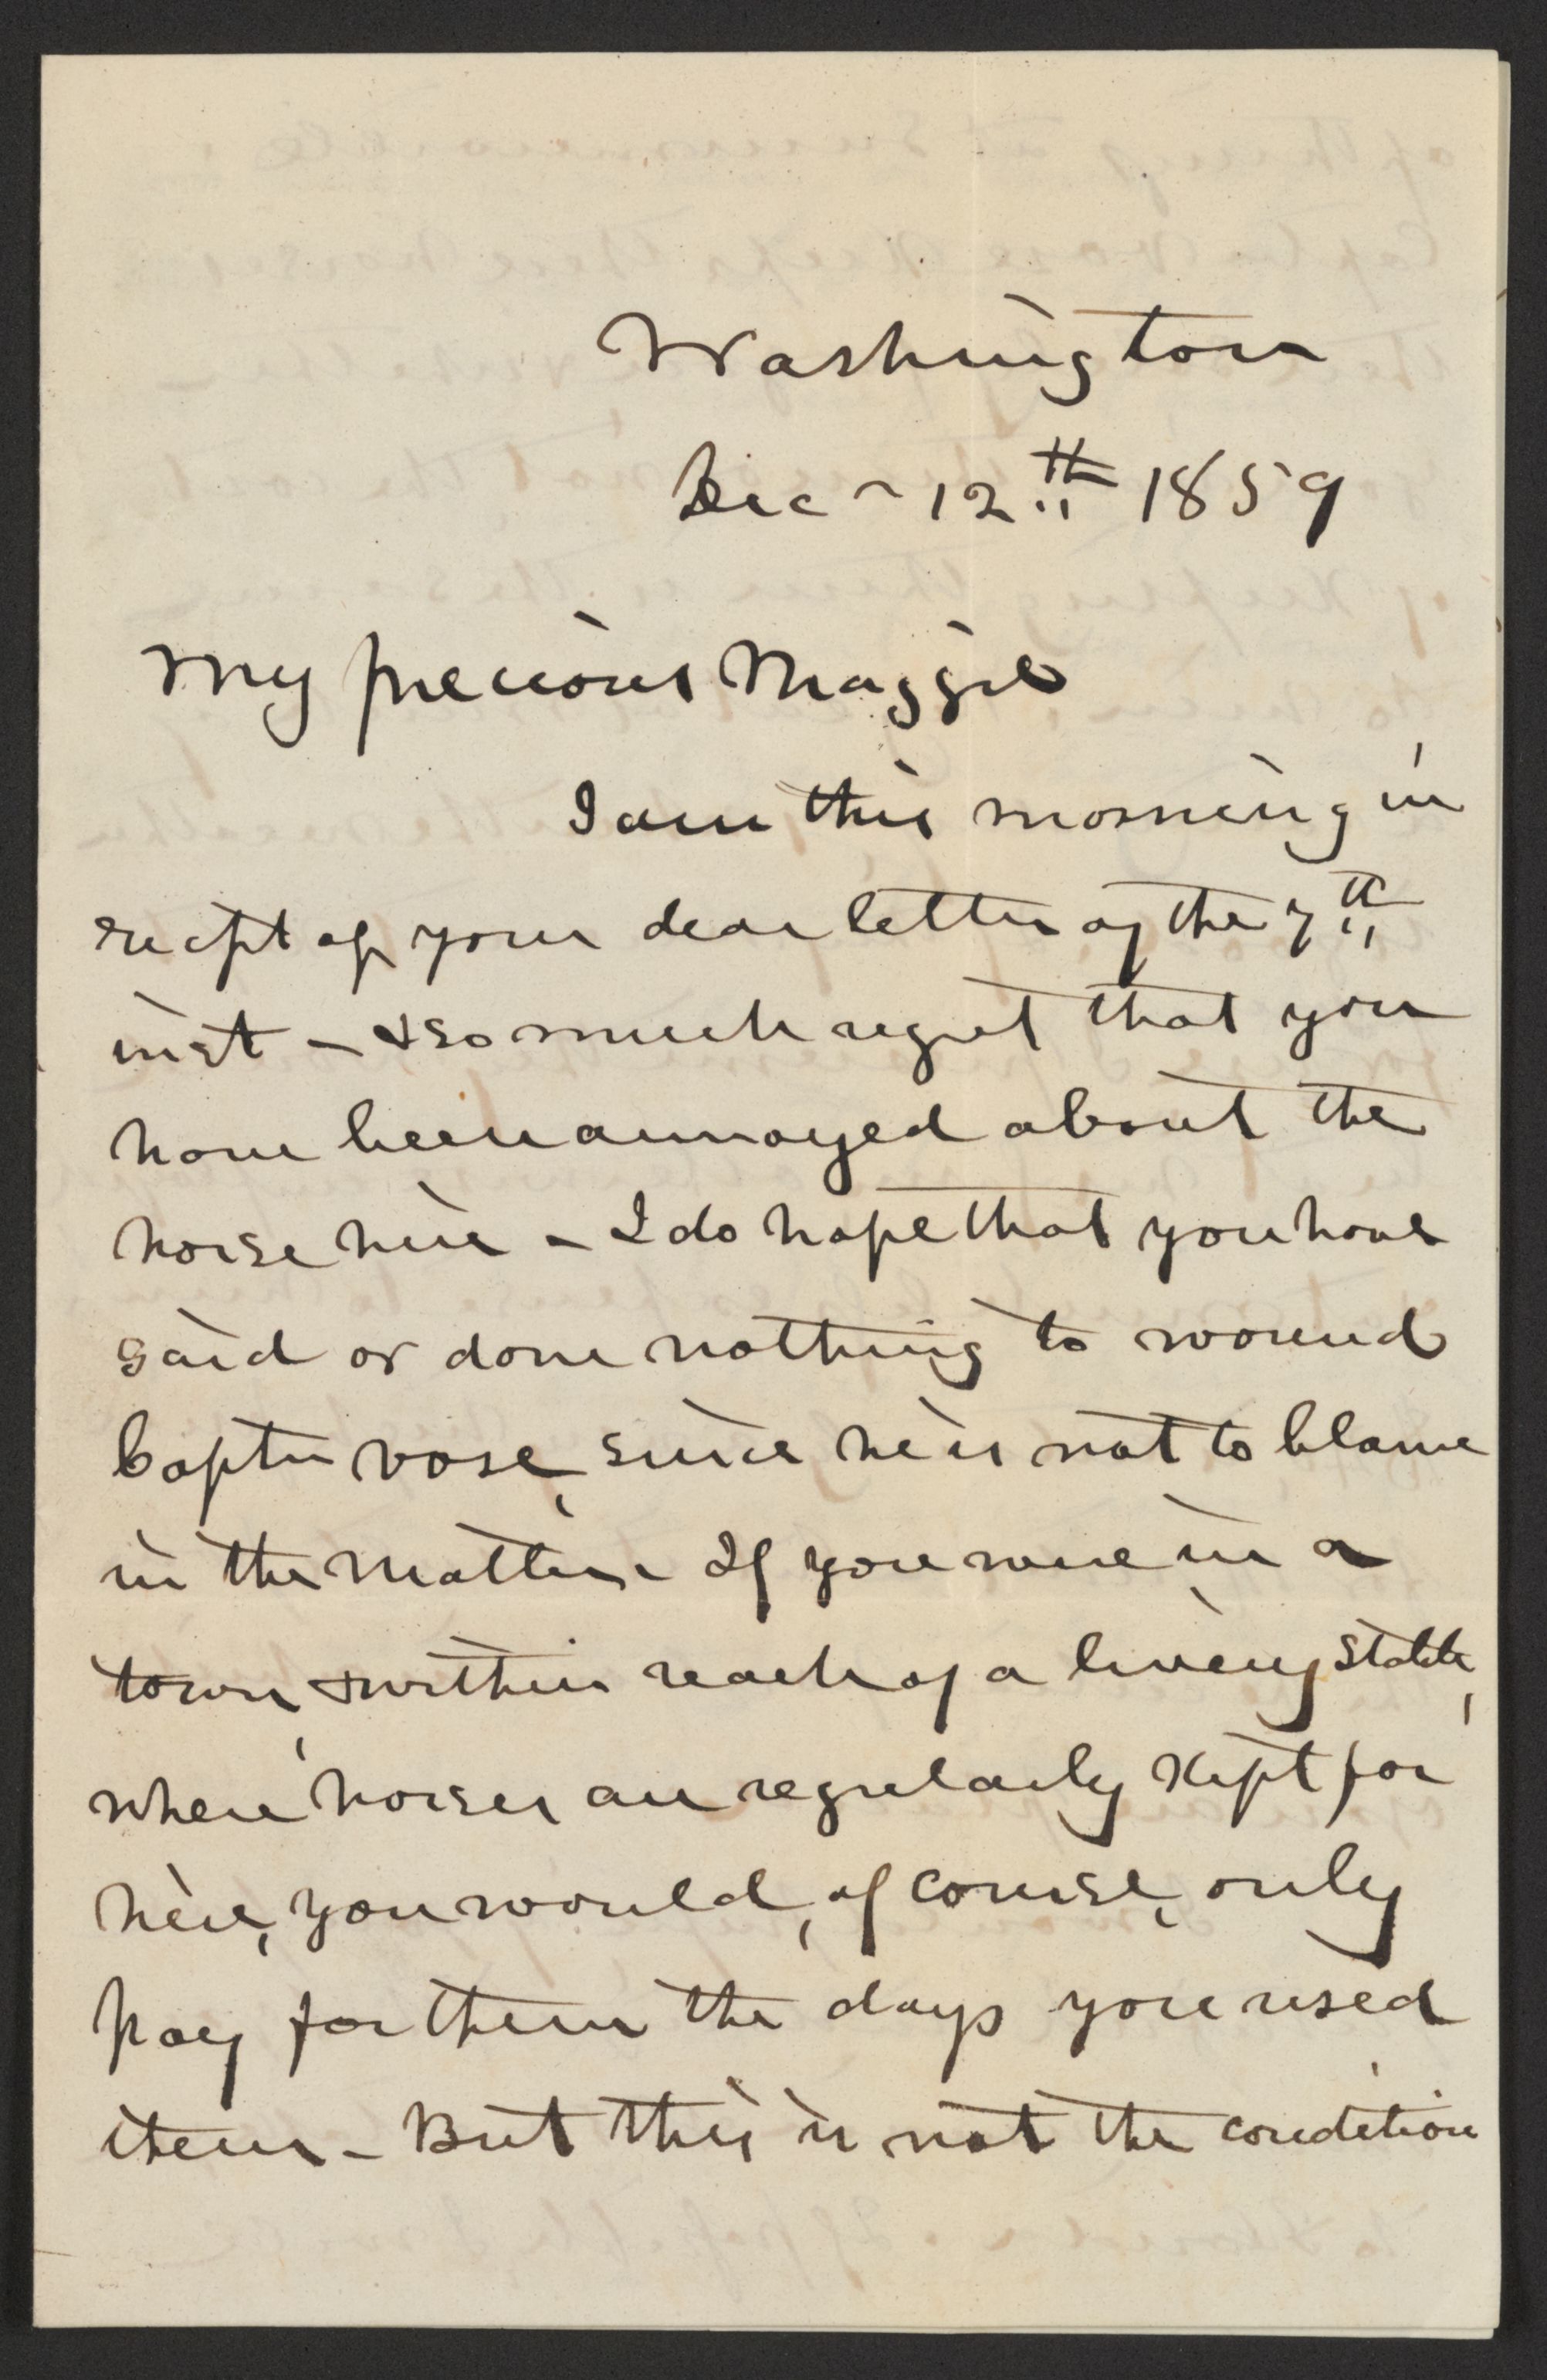 Washington
Dec ~ 12th 1859
My precious Maggie
I am this morning in
recipt of your dear letter of the 7th
inst - & so much regret that you
have been annoyed about the
horse hire - I do hope that you have
said or done nothing to wound
Captn Vose, since he is not to blame
in the matter - If you were in a
town, & within reach of a livery stable,
where horses are regularly kept for
hire, you would, of course, only
pay for them the days you used
them - But this is not the condition